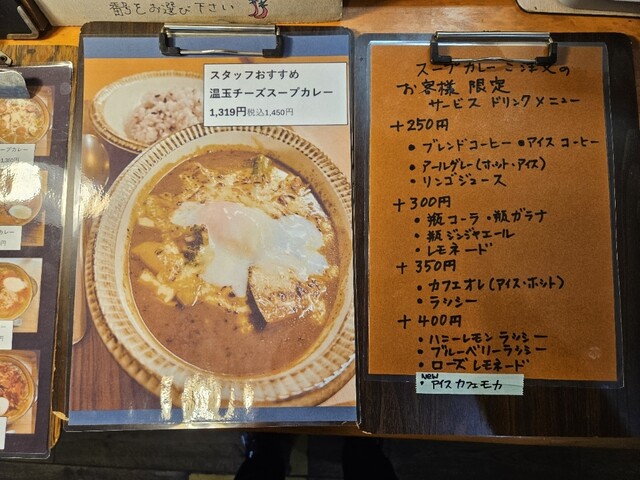 番号をお選び下さい
スタッフおすすめ
温玉チーズスープカレー
1,319円税込1,450円
スープカレーご注文の
お客様 限定
サービス ドリンクメニュー
+250円
• ブレンドコーヒー • アイス コーヒー
• アールグレー(ホット・アイス)
• リンゴジュース
+300円
• 瓶コーラ • 瓶ガラナ
• 瓶ジンジャエール
• レモネード
+350円
• カフェオレ(アイス・ホット)
• ラッシー
+400円
• ハニーレモン ラッシー
• ブルーベリーラッシー
• ローズ レモネード
NEW
• アイス カフェモカ